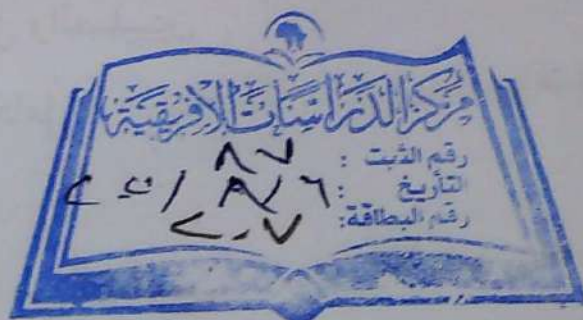 مركز الدراسات الأفريقية
رقم الثبت : ٨٧
التأريخ :
رقم البطاقة: ٢٠٧